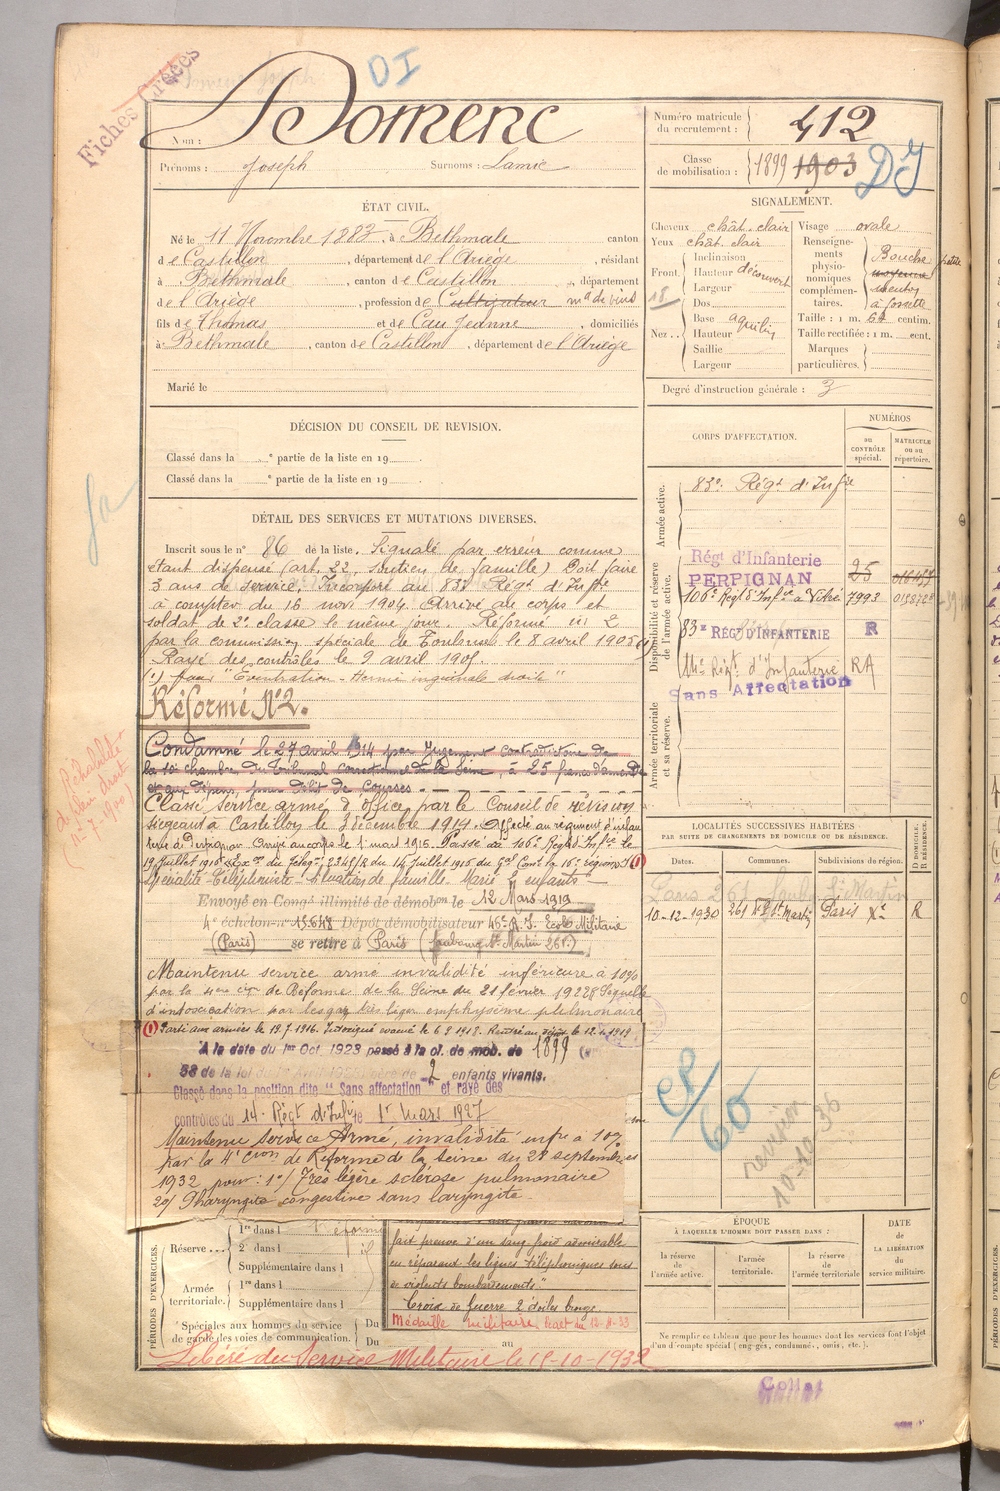 Fiches Créées
DI
Nom : Domenc
Prénoms : Joseph Surnoms : Lamic
Numéro matricule du recrutement : 412
Classe de mobilisation : 1899 1903
DJ
ÉTAT CIVIL.
Né le 11 Novembre 1883, à Bethmale, canton
de Castillon, département de l'Ariège, résidant
à Bethmale, canton de Castillon, département
de l'Ariège, profession de Cultivateur md de vins
fils de Thomas et de Cau Jeanne, domiciliés
à Bethmale, canton de Castillon, département de l'Ariège
Marié le
SIGNALEMENT.
Cheveux chât. clair
Yeux chât. clair
Front. Inclinaison
Hauteur découvert
Largeur
18
Nez Dos
Base aquilin
Hauteur
Saillie
Largeur
Visage ovale
Renseignements physionomiques complémentaires. Bouche petite moyenne menton à fossette
Taille : 1 m. 64 centim.
Taille rectifiée : 1 m. cent.
Marques particulières.
Degré d'instruction générale : 3
DÉCISION DU CONSEIL DE REVISION.
Classé dans la e partie de la liste en 19
Classé dans la e partie de la liste en 19
CORPS D'AFFECTATION.
NUMÉROS
au CONTRÔLE spécial.
MATRICULE ou au répertoire.
Armée active.
83e Régt d'Infie
Disponibilité et réserve de l'armée active.
Régt d'Infanterie
PERPIGNAN 25
106e Régt d'Infie à Vitré 7993
83e RÉGT D'INFANTERIE R
14e Régt d'Infanterie RA
Sans Affectation
Armée territoriale et sa réserve.
DÉTAIL DES SERVICES ET MUTATIONS DIVERSES.
Inscrit sous le n° 86 de la liste. Signalé par erreur comme
étant dispensé (art. 22, soutien de famille) Doit faire
3 ans de service. Incorporé au 83e Régt d'Infie
à compter du 16 nov 1904. Arrivé au corps et
soldat de 2e classe le même jour. Réformé n° 2
par la commission spéciale de Toulouse le 8 avril 1905 (1)
Rayé des contrôles le 9 avril 1905.
(1) pour "Eventration - Hernie inguinale droite"
Réformé N°2.
Condamné le 27 avril 1914 par Jugement contradictoire de
la 10e chambre du Tribunal correctionnel de la Seine, à 25 francs d'amende
et aux dépens, pour délit de Courses.
Réhabilité de plein droit
Classé service armé d'office par le Conseil de révision
siégeant à Castillon le 3 décembre 1914. Affecté au régiment d'infan
terie à Perpignan. Arrivé au corps le 1 mars 1915. Passé au 106e Régt Infie le
19 Juillet 1916 Exon du Télégr. 2345/R du 14 Juillet 1916 du Gal Comt la 16e région (1)
Spécialité Téléphoniste - Situation de famille - Marié 2 enfants
Envoyé en Congé illimité de démobon le 12 Mars 1919
4e échelon n° 15648 Dépôt démobilisateur 46e R.I. Ecole Militaire
(Paris) se retire à Paris (faubourg St Martin 261)
Maintenu service armé invalidité inférieure à 10%
par la 4eme cion de Réforme de la Seine du 21 février 1922 Séquelles
d'intoxication par les gaz très léger emphysème pulmonaire
(1) Parti aux armées le 19.7.1916. Intoxiqué évacué le 6.9.1918. Rentré au dépôt le 12.1.1919
A la date du 1er Oct. 1923 passé à la cl. de mob. de 1899
58 de la loi du père de 2 enfants vivants.
Classé dans la position dite "Sans affectation" et rayé des
contrôles du 14e Régt d'Infie le 1er Mars 1927
Maintenu Service Armé, invalidité infre à 10%
par la 4e Cion de Réforme de la Seine du 28 septembre
1932 pour : 1°/ Très légère sclérose pulmonaire
2°/ Pharyngite congestive sans laryngite.
LOCALITÉS SUCCESSIVES HABITÉES
PAR SUITE DE CHANGEMENTS DE DOMICILE OU DE RÉSIDENCE.
Dates. Communes. Subdivisions du région. D DOMICILE. R RÉSIDENCE.
Paris 261 faub. St Martin
10-12-1930 261 Fg St Martin Paris Xe R
CP/60
revision
10-10-36
PÉRIODES D'EXERCICES.
Réserve... 1re dans l
2e dans l
Supplémentaire dans l
Armée territoriale. 1re dans l
Supplémentaire dans l
Spéciales aux hommes du service de garde des voies de communication. Du
Du au
fait preuve d'un sang froid admirable
en réparant les lignes téléphoniques sous
de violents bombardements".
Croix de Guerre 2 étoiles bronze.
Médaille militaire
ÉPOQUE
À LAQUELLE L'HOMME DOIT PASSER DANS :
la réserve de l'armée active.
l'armée territoriale.
la réserve de l'armée territoriale
DATE DE LA LIBÉRATION du service militaire.
Ne remplir ce tableau que pour les hommes dont les services font l'objet d'un compte spécial (engagés, condamnés, omis, etc.).
Libéré du Service Militaire le 15-10-1932